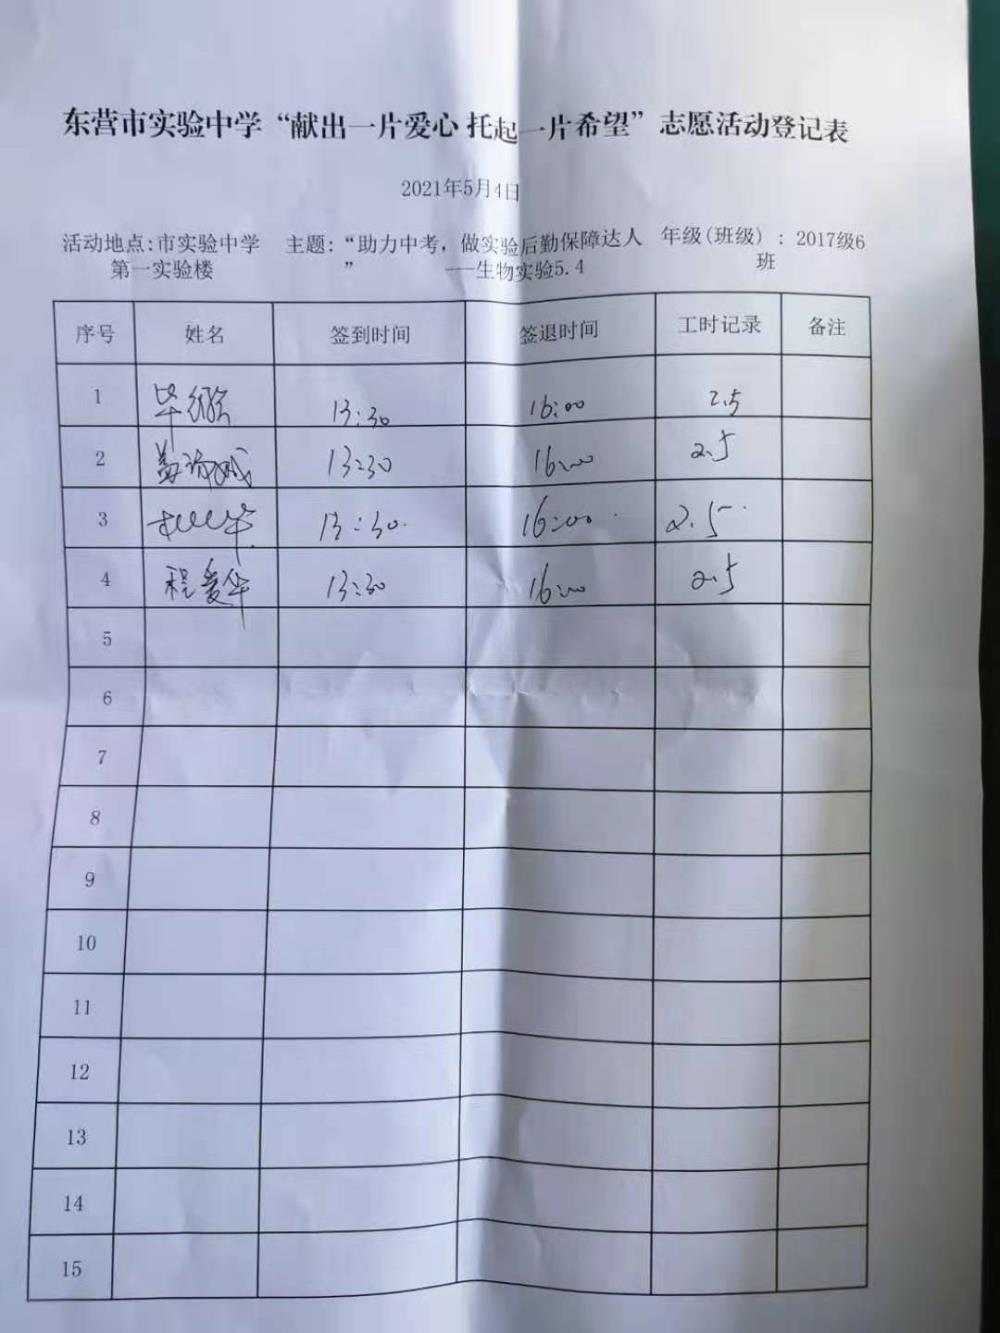 东营市实验中学“献出一片爱心 托起一片希望”志愿活动登记表
2021年5月4日
活动地点:市实验中学 主题:“助力中考，做实验后勤保障达人 年级(班级)：2017级6
第一实验楼 ” ——生物实验5.4 班
序号 姓名 签到时间 签退时间 工时记录 备注
1 毕 13:30 16:00 2.5
2 13:30 16:00 2.5
3 13:30 16:00 2.5
4 程爱华 13:30 16:00 2.5
5
6
7
8
9
10
11
12
13
14
15